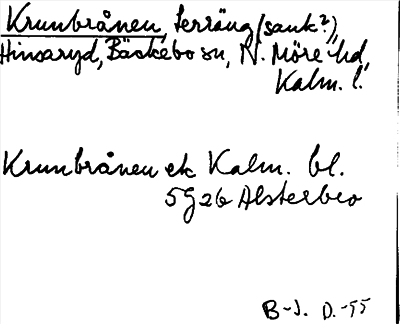 Krumbrånen, terräng (sank?),
Hinsaryd, Bäckebo sn, N. Möre hd,
Kalm. l.
Krumbrånen ek Kalm. bl.
5G26 Alsterbro
B-J. D. -55